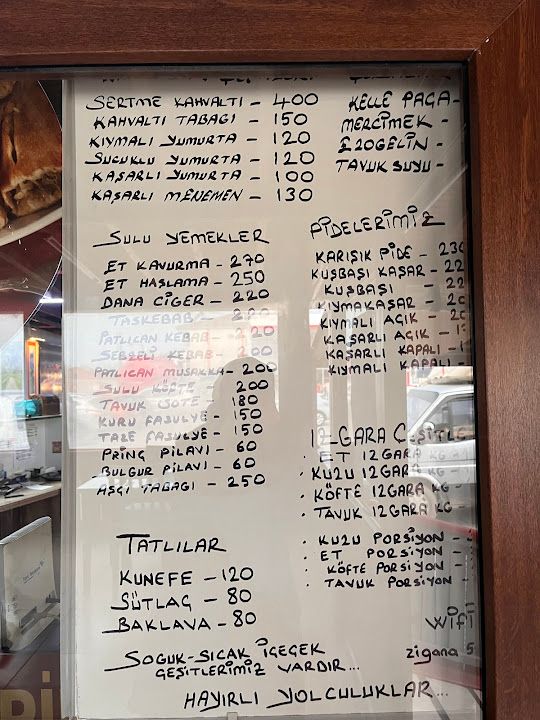 SERTME KAHVALTI - 400
KAHVALTI TABAGI - 150
KIYMALI YUMURTA - 120
SUCUKLU YUMURTA - 120
KAŞARLI YUMURTA - 100
KAŞARLI MENEMEN - 130
KELLE PAÇA -
MERCİMEK -
EZOGELİN -
TAVUK SUYU -
SULU YEMEKLER
ET KAVURMA - 270
ET HAŞLAMA - 250
DANA CİGER - 220
TASKEBAB -
PATLICAN KEBAB - 220
SEBZELİ KEBAB - 200
PATLICAN MUSAKKA - 200
SULU KÖFTE 200
TAVUK SOTE - 180
KURU FASULYE - 150
TAZE FASULYE - 150
PRİNÇ PİLAVI - 60
BULGUR PİLAVI - 60
AŞÇI TABAGI - 250
PİDELERİMİZ
KARIŞIK PİDE - 230
KUŞBAŞI KAŞAR - 22
KUŞBAŞI - 22
KIYMAKAŞAR - 20
KIYMALI AÇIK - 20
KAŞARLI AÇIK -
KAŞARLI KAPALI -
KIYMALI KAPALI -
IZGARA ÇEŞİTLE
· ET IZGARA KG -
· KUZU IZGARA KG -
· KÖFTE IZGARA KG -
· TAVUK IZGARA KG -
· KUZU PORSİYON -
· ET PORSİYON -
· KÖFTE PORSİYON -
· TAVUK PORSİYON -
TATLILAR
KUNEFE - 120
SÜTLAÇ - 80
BAKLAVA - 80
SOGUK-SICAK İÇEÇEK
ÇEŞİTLERİMİZ VARDIR...
HAYIRLI YOLCULUKLAR...
wifi
zigana 5